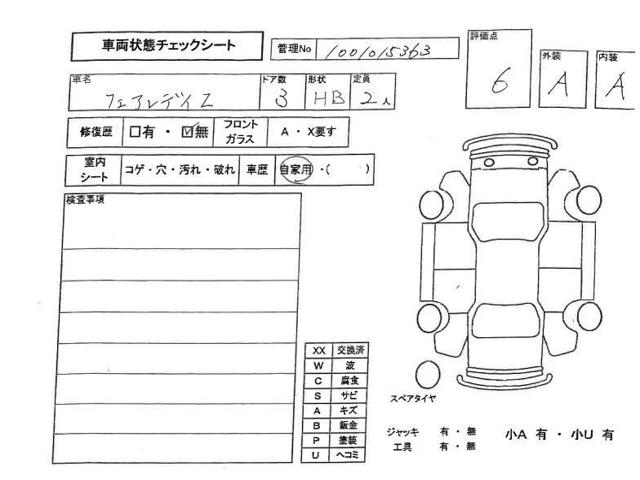 車両状態チェックシート
管理No 1001015363
評価点 6
外装 A
内装 A
車名 フェアレディZ
ドア数 3
形状 HB
定員 2人
修復歴 □有・☑無
フロントガラス A・X要す
室内シート コゲ・穴・汚れ・破れ
車歴 自家用・( )
検査事項
XX 交換済
W 波
C 腐食
S サビ
A キズ
B 鈑金
P 塗装
U ヘコミ
スペアタイヤ
ジャッキ 有・無
工具 有・無
小A 有・小U 有